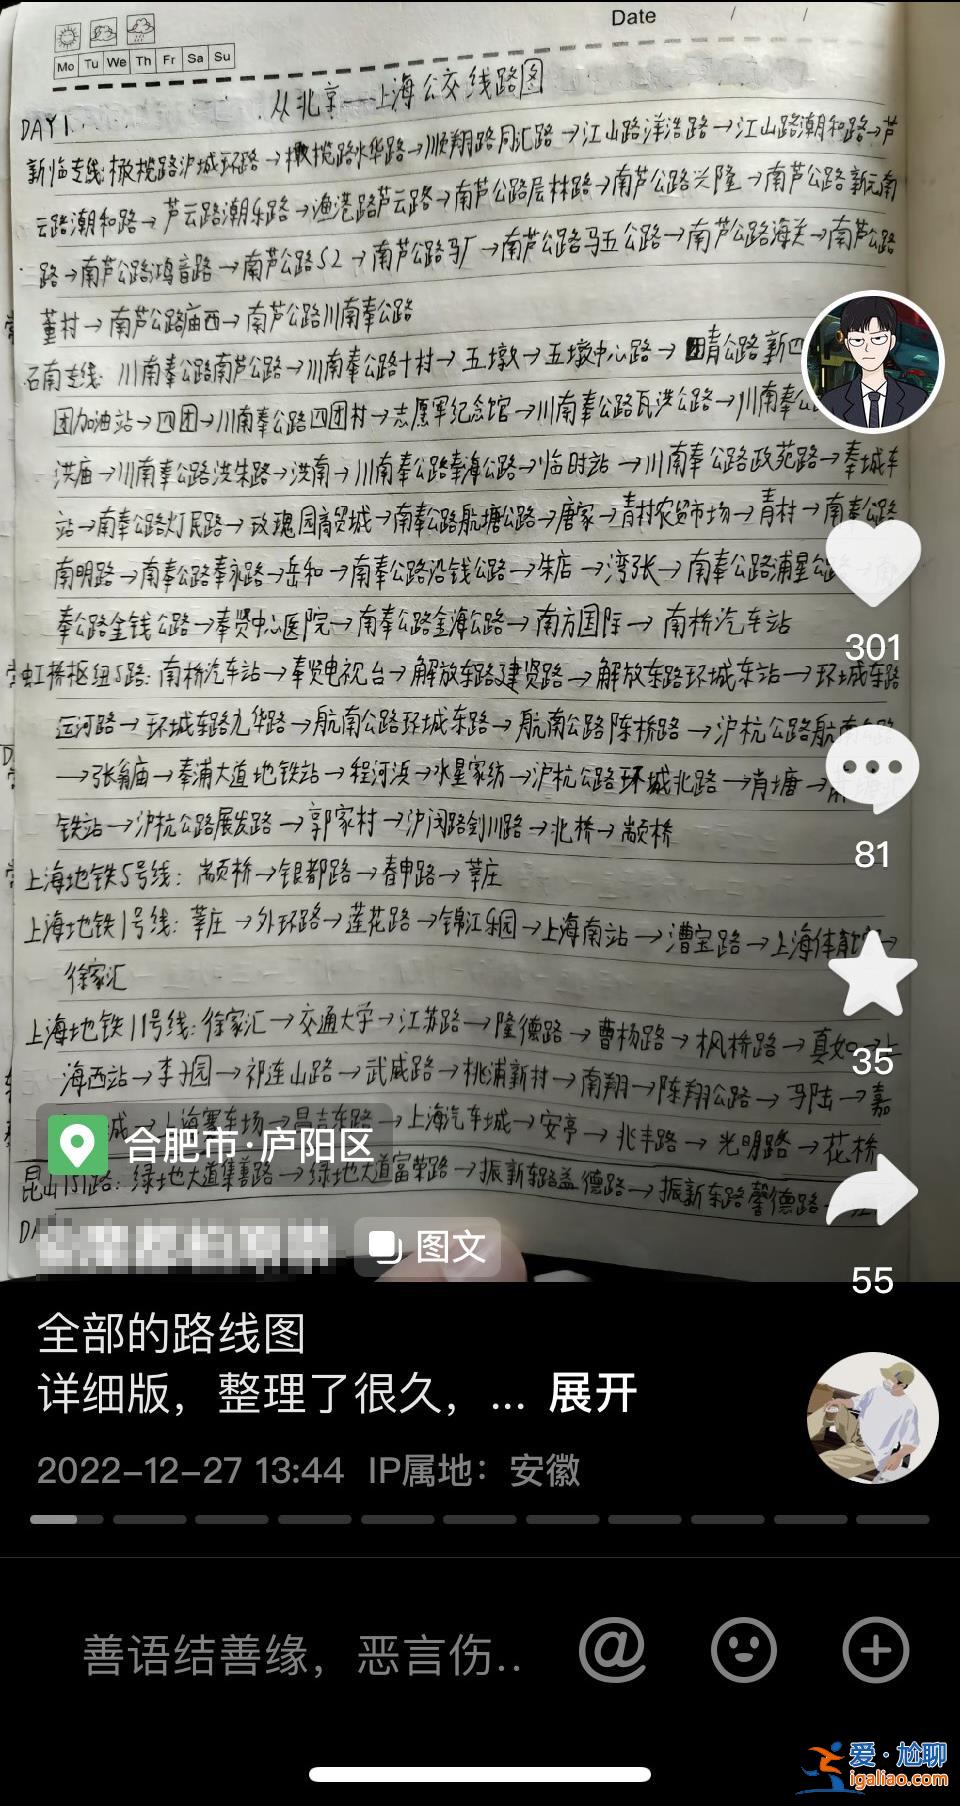 Date / /
Mo Tu We Th Fr Sa Su
从北京——上海公交线路图
DAY1
新临专线:橄榄路沪城环路→橄榄路水华路→顺翔路同汇路→江山路洋浩路→江山路潮和路→芦
云路潮和路→芦云路潮乐路→渔港路芦云路→南芦公路层林路→南芦公路兴隆→南芦公路新元南
路→南芦公路鸿音路→南芦公路S2→南芦公路马厂→南芦公路马五公路→南芦公路海关→南芦公路
董村→南芦公路庙西→南芦公路川南奉公路
石南专线:川南奉公路南芦公路→川南奉公路十村→五墩→五墩中心路→晴公路新四
团加油站→四团→川南奉公路四团村→志愿军纪念馆→川南奉公路瓦洪公路→川南奉公
洪庙→川南奉公路洪朱路→洪南→川南奉公路奉海公路→临时站→川南奉公路政苑路→奉城车
站→南奉公路灯民路→玫瑰园商贸城→南奉公路航塘公路→唐家→青村农贸市场→青村→南奉公路
南明路→南奉公路奉永路→岳和→南奉公路沿钱公路→朱店→湾张→南奉公路浦星公路→南
奉公路金钱公路→奉贤中心医院→南奉公路金海公路→南方国际→南桥汽车站
虹桥枢纽5路:南桥汽车站→奉贤电视台→解放东路建贤路→解放东路环城东站→环城东路
运河路→环城东路九华路→航南公路环城东路→航南公路陈桥路→沪杭公路航南公路
→张翁庙→奉浦大道地铁站→程河浜→水星家纺→沪杭公路环城北路→肖塘→
铁站→沪杭公路展发路→郭家村→沪闵路剑川路→北桥→颛桥
上海地铁5号线:颛桥→银都路→春申路→莘庄
上海地铁1号线:莘庄→外环路→莲花路→锦江乐园→上海南站→漕宝路→上海体育馆→
徐家汇
上海地铁11号线:徐家汇→交通大学→江苏路→隆德路→曹杨路→枫桥路→真如→上
海西站→李子园→祁连山路→武威路→桃浦新村→南翔→陈翔公路→马陆→嘉
城→上海赛车场→昌吉东路→上海汽车城→安亭→兆丰路→光明路→花桥
昆山151路:绿地大道集善路→绿地大道富荣路→振新东路益德路→振新东路馨德路
301
81
35
55
合肥市·庐阳区
图文
全部的路线图
详细版，整理了很久，... 展开
2022-12-27 13:44 IP属地：安徽
善语结善缘，恶言伤..
@
爱·尬聊
igaliao.com